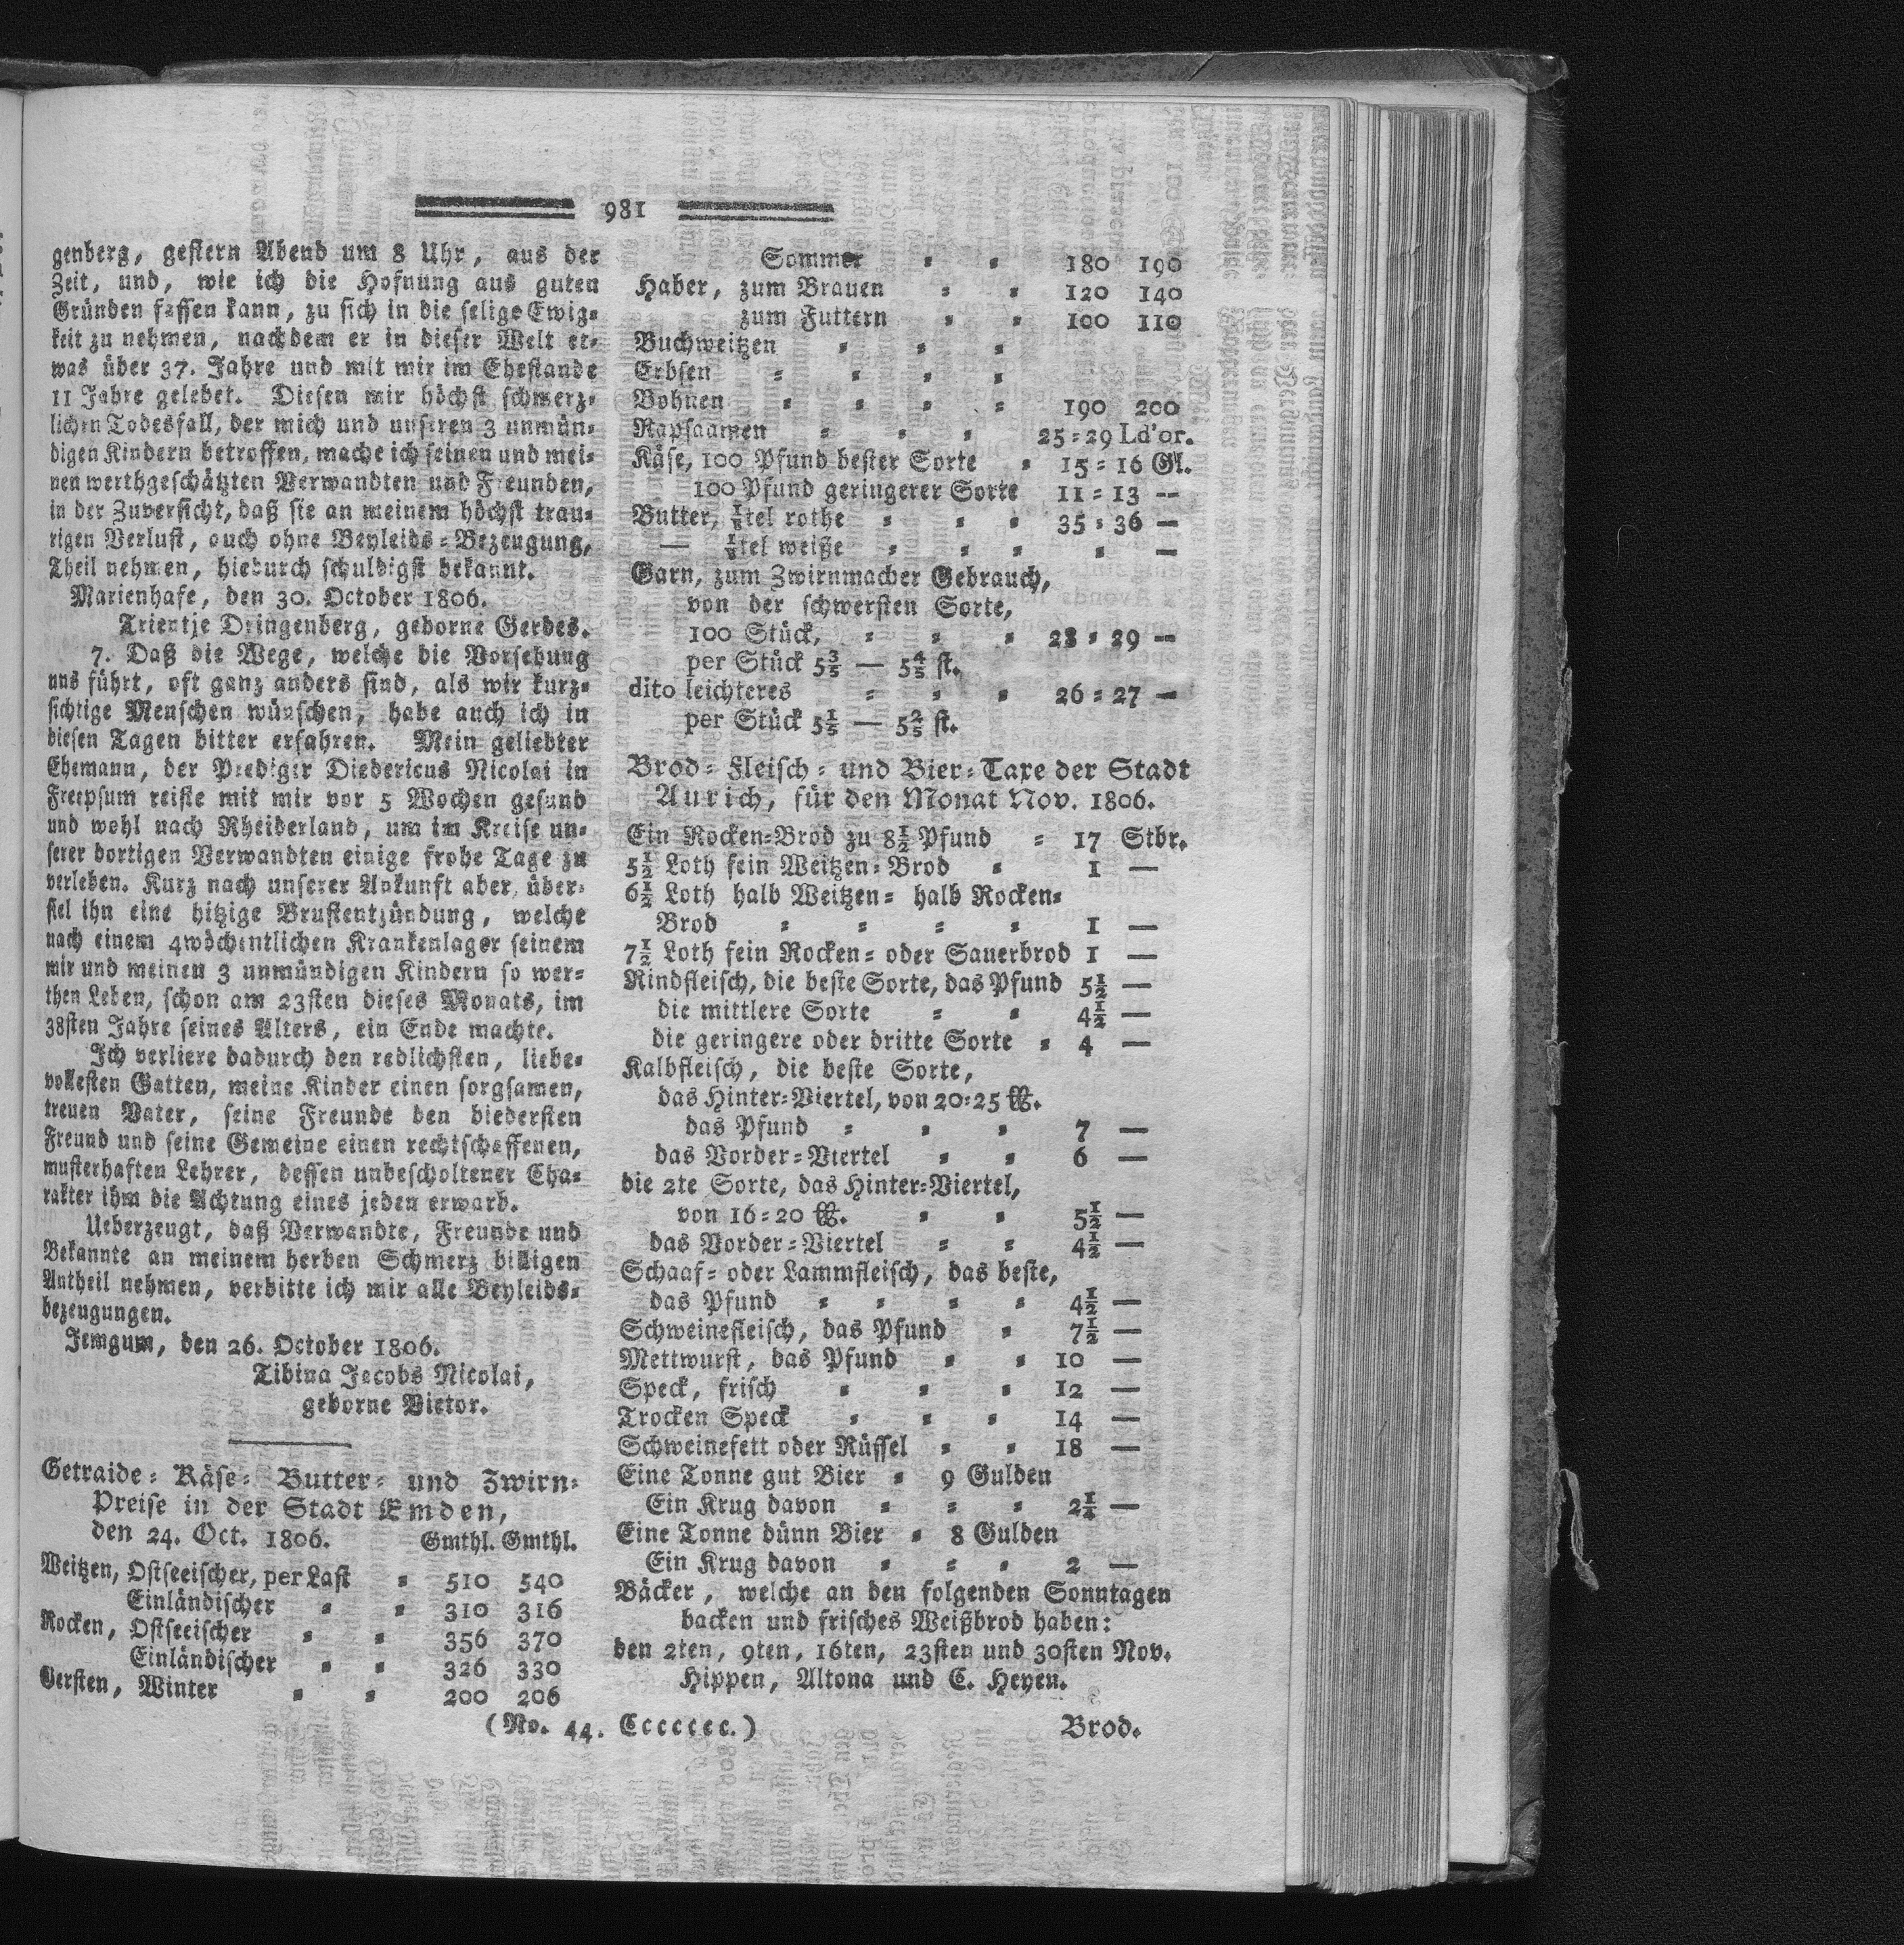 981
genberg, gestern Abend um 8 Uhr, aus der
Zeit, und, wie ich die Hofnung aus guten
Gründen fassen kann, zu sich in die selige Ewig=
keit zu nehmen, nachdem er in dieser Welt et=
was über 37. Jahre und mit mir im Ehestande
11 Jahre gelebet. Diesen mir höchst schmerz=
lichen Todesfall, der mich und unseren 3 unmün=
digen Kindern betroffen, mache ich seinen und mei=
nen werthgeschätzten Verwandten und Freunden,
in der Zuversicht, daß sie an meinem höchst trau=
rigen Verlust, auch ohne Beyleids=Bezeugung,
Theil nehmen, hiedurch schuldigst bekannt.
Marienhafe, den 30. October 1806.
Trientje Dringenberg, geborne Gerdes.
7. Daß die Wege, welche die Vorsehung
uns führt, oft ganz anders sind, als wir kurz=
sichtige Menschen wünschen, habe auch ich in
diesen Tagen bitter erfahren. Mein geliebter
Ehemann, der Prediger Diedericus Nicolai in
Freepsum reiste mit mir vor 5 Wochen gesund
und wohl nach Rheiderland, um im Kreise un=
serer dortigen Verwandten einige frohe Tage zu
verleben. Kurz nach unserer Ankunft aber, über=
fiel ihn eine hitzige Brustentzündung, welche
nach einem 4wöchentlichen Krankenlager seinem
mir und meinen 3 unmündigen Kindern so wer=
then Leben, schon am 23sten dieses Monats, im
38sten Jahre seines Alters, ein Ende machte.
Ich verliere dadurch den redlichsten, liebe=
vollesten Gatten, meine Kinder einen sorgsamen,
treuen Vater, seine Freunde den biedersten
Freund und seine Gemeine einen rechtschaffenen,
musterhaften Lehrer, dessen unbescholtener Cha=
rakter ihm die Achtung eines jeden erwarb.
Ueberzeugt, daß Verwandte, Freunde und
Bekannte an meinem herben Schmerz billigen
Antheil nehmen, verbitte ich mir alle Beyleids=
bezeugungen.
Jemgum, den 26. October 1806.
Tibina Jacobs Nicolai,
geborne Vietor.
Getraide= Käse= Butter= und Zwirn=
Preise in der Stadt Emden,
den 24. Oct. 1806. Gmthl. Gmthl.
Weitzen, Ostseeischer, per Last = 510 540
Einländischer = = 310 316
Rocken, Ostseeischer = = 356 370
Einländischer = = 326 330
Gersten, Winter = = 200 206
Sommer = = 180 190
Haber, zum Brauen = = 120 140
zum Futtern = = 100 110
Buchweitzen = = =
Erbsen = = = =
Bohnen = = = = 190 200
Rapsaamen = = = 25=29 Ld'or.
Käse, 100 Pfund bester Sorte = 15=16 Gl.
100 Pfund geringerer Sorte 11=13 —
Butter, ⅛tel rothe = = = 35=36 —
— ⅛tel weiße = = = = —
Garn, zum Zwirnmacher Gebrauch,
von der schwersten Sorte,
100 Stück, = = = 28=29 —
per Stück 5⅗ — 5⅘ st.
dito leichteres = = = 26=27 —
per Stück 5⅕ — 5⅖ st.
Brod= Fleisch= und Bier=Taxe der Stadt
Aurich, für den Monat Nov. 1806.
Ein Rocken=Brod zu 8½ Pfund = 17 Stbr.
5½ Loth fein Weitzen=Brod = 1 —
6½ Loth halb Weitzen= halb Rocken=
Brod = = = = 1 —
7½ Loth fein Rocken= oder Sauerbrod 1 —
Rindfleisch, die beste Sorte, das Pfund 5½ —
die mittlere Sorte = = 4½ —
die geringere oder dritte Sorte = 4 —
Kalbfleisch, die beste Sorte,
das Hinter=Viertel, von 20=25 ℔.
das Pfund = = = 7 —
das Vorder=Viertel = = 6 —
die 2te Sorte, das Hinter=Viertel,
von 16=20 ℔. = = 5½ —
das Vorder=Viertel = = 4½ —
Schaaf= oder Lammfleisch, das beste,
das Pfund = = = = 4½ —
Schweinefleisch, das Pfund = 7½ —
Mettwurst, das Pfund = = 10 —
Speck, frisch = = = 12 —
Trocken Speck = = = 14 —
Schweinefett oder Rüssel = = 18 —
Eine Tonne gut Bier = 9 Gulden
Ein Krug davon = = = 2¼ —
Eine Tonne dünn Bier = 8 Gulden
Ein Krug davon = = = 2 —
Bäcker, welche an den folgenden Sonntagen
backen und frisches Weißbrod haben:
den 2ten, 9ten, 16ten, 23sten und 30sten Nov.
Hippen, Altona und C. Heyen.
(No. 44. Ccccccc.) Brod.